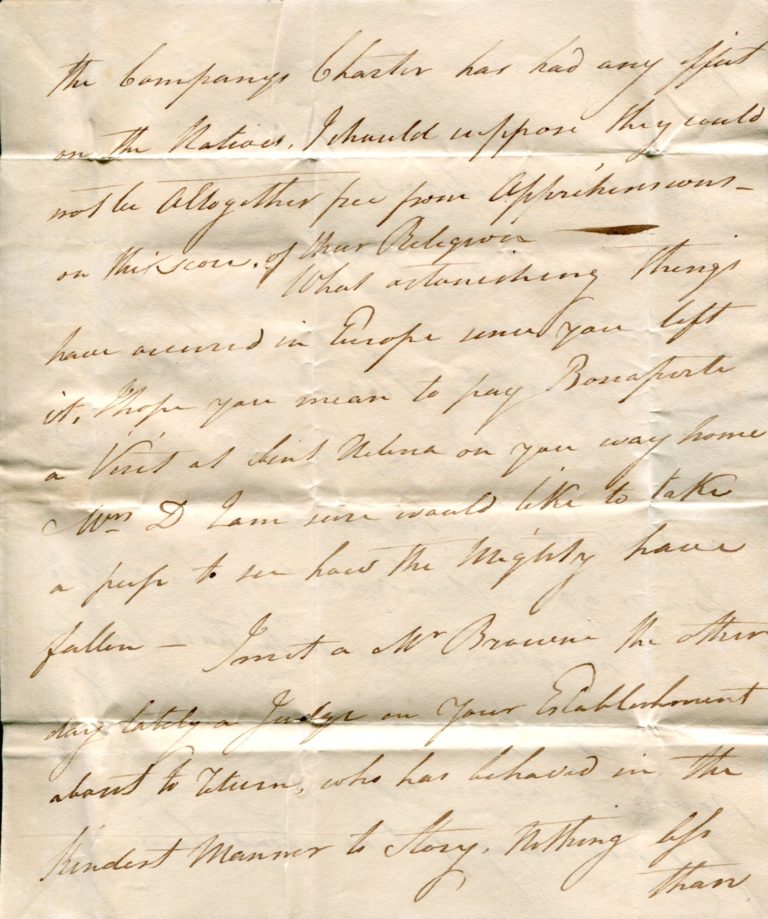 the Companys Charter has had any effect
on the Natives, I should suppose they would
not be Altogether free from Apprehensions -
on this score. of their Religion
What astonishing things
have occured in Europe since you left
it, I hope you mean to pay Bonaparte
a Visit at Saint Helena on you way home
Mrs D I am sure would like to take
a peep to see how the Mighty have
fallen - I met a Mr Browne the other
day lately a Judge on Your Establishment
about to return, who has behaved in the
kindest Manner to Story, Nothing less
than